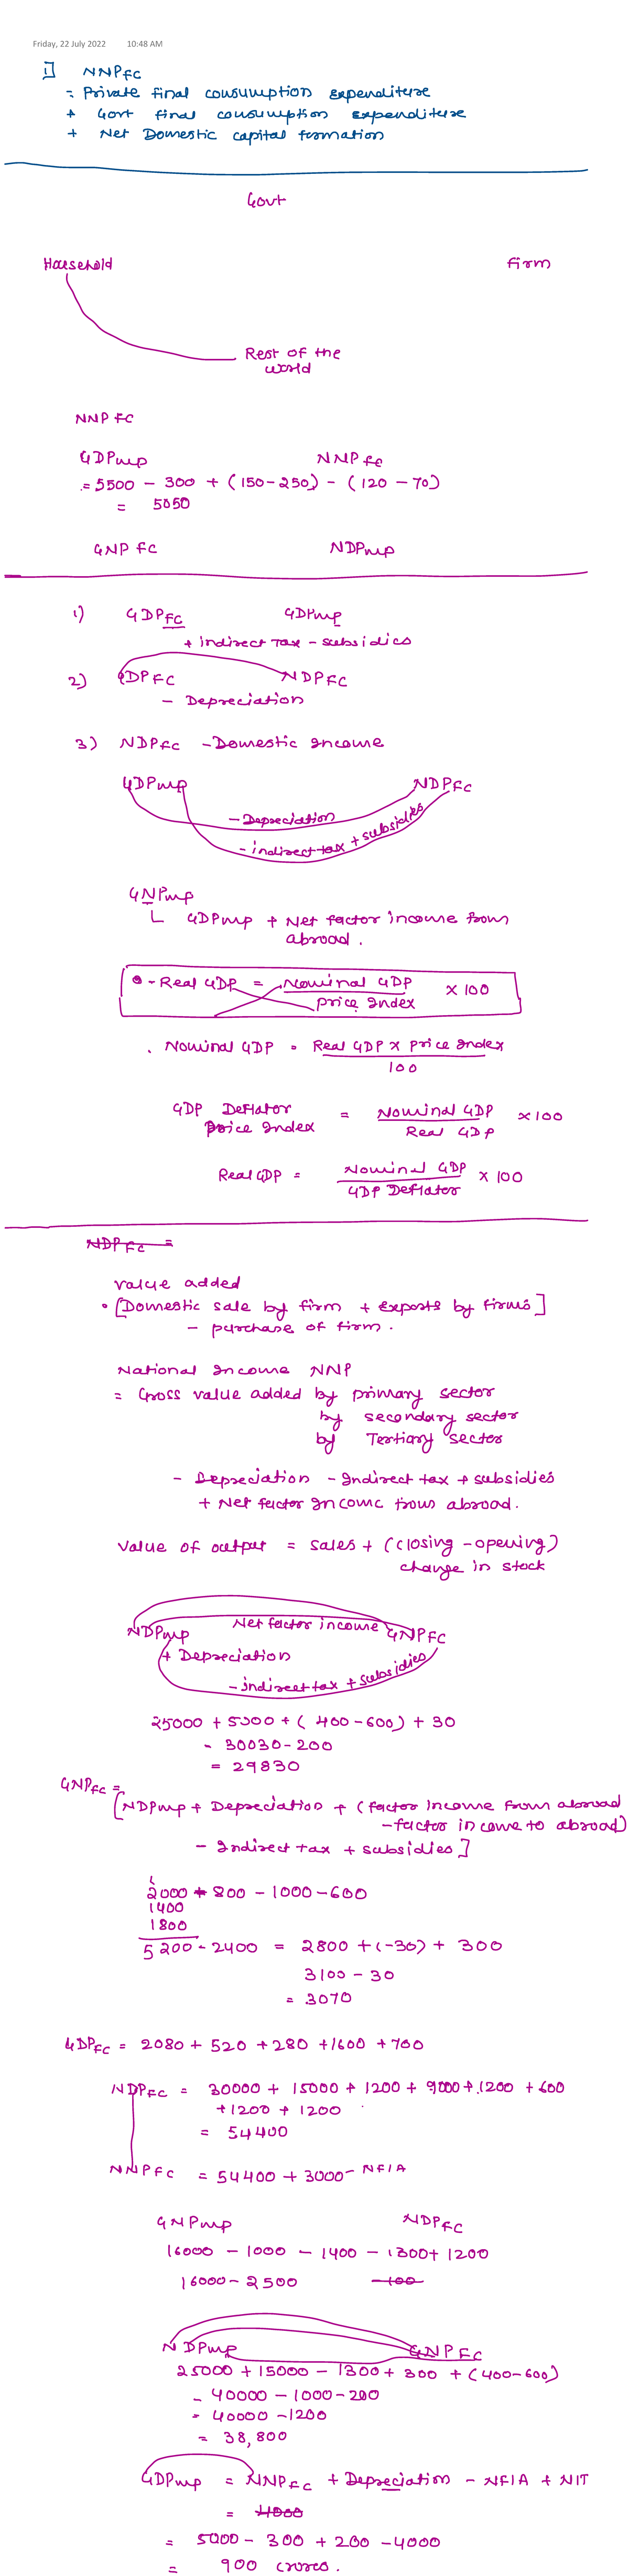 Friday, 22 July 2022 10:48 AM
1] NNP FC
= Private final consumption expenditure
+ Govt final consumption expenditure
+ Net Domestic capital formation
Govt
Household Firm
Rest of the
world
NNP FC
GDP mp NNP fc
= 5500 - 300 + (150-250) - (120 - 70)
= 5050
GNP FC NDP mp
1) GDP FC GDP mp
+ indirect Tax - subsidies
2) GDP FC NDP FC
- Depreciation
3) NDP FC - Domestic Income
GDP mp NDP FC
- Depreciation
- indirect tax + subsidies
GNP mp
GDP mp + Net factor income from
abroad.
- Real GDP = Nominal GDP × 100
Price Index
. Nominal GDP = Real GDP × Price Index
100
GDP Deflator = Nominal GDP × 100
Price Index Real GDP
Real GDP = Nominal GDP × 100
GDP Deflator
NDP FC =
Value added
• [Domestic sale by firm + exports by firms]
- purchase of firm.
National Income NNP
= Gross value added by primary sector
by secondary sector
by Tertiary sector
- Depreciation - Indirect tax + subsidies
+ Net factor Income from abroad.
Value of output = sales + (closing - opening)
change in stock
NDP mp Net factor income GNP FC
+ Depreciation
- indirect tax + subsidies
25000 + 5000 + ( 400 - 600) + 30
= 30030 - 200
= 29830
GNP FC =
[NDP mp + Depreciation + (factor income from abroad
- factor income to abroad)
- Indirect tax + subsidies]
2000 + 800 - 1000 - 600
1400
1800
5200 - 2400 = 2800 + (-30) + 300
3100 - 30
= 3070
GDP FC = 2080 + 520 + 280 + 1600 + 700
NDP FC = 30000 + 15000 + 1200 + 9000 + 1200 + 600
+ 1200 + 1200
= 54400
NNP FC = 54400 + 3000 - NFIA
GNP mp NDP FC
16000 - 1000 - 1400 - 1300 + 1200
16000 - 2500 - 100
NDP mp GNP FC
25000 + 15000 - 1300 + 300 + (400-600)
= 40000 - 1000 - 200
= 40000 - 1200
= 38,800
GDP mp = NNP FC + Depreciation - NFIA + NIT
= 4000
= 5000 - 300 + 200 - 4000
= 900 crores.